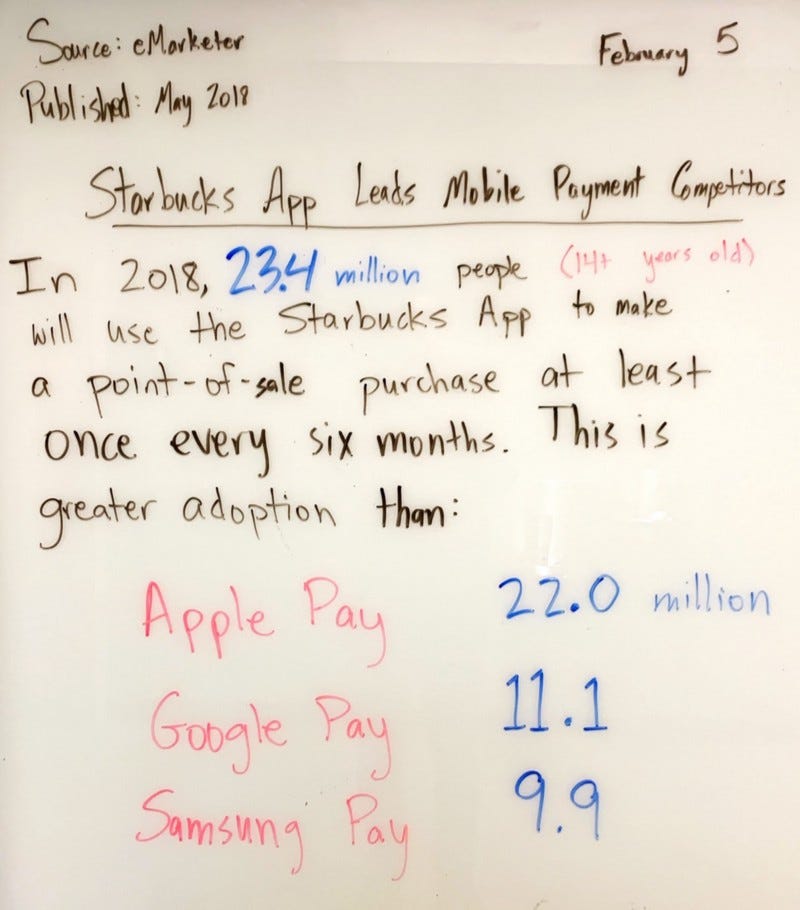 Source: eMarketer
February 5
Published: May 2018
Starbucks App Leads Mobile Payment Competitors
In 2018, 23.4 million people (14+ years old)
will use the Starbucks App to make
a point-of-sale purchase at least
once every six months. This is
greater adoption than:
Apple Pay 22.0 million
Google Pay 11.1
Samsung Pay 9.9